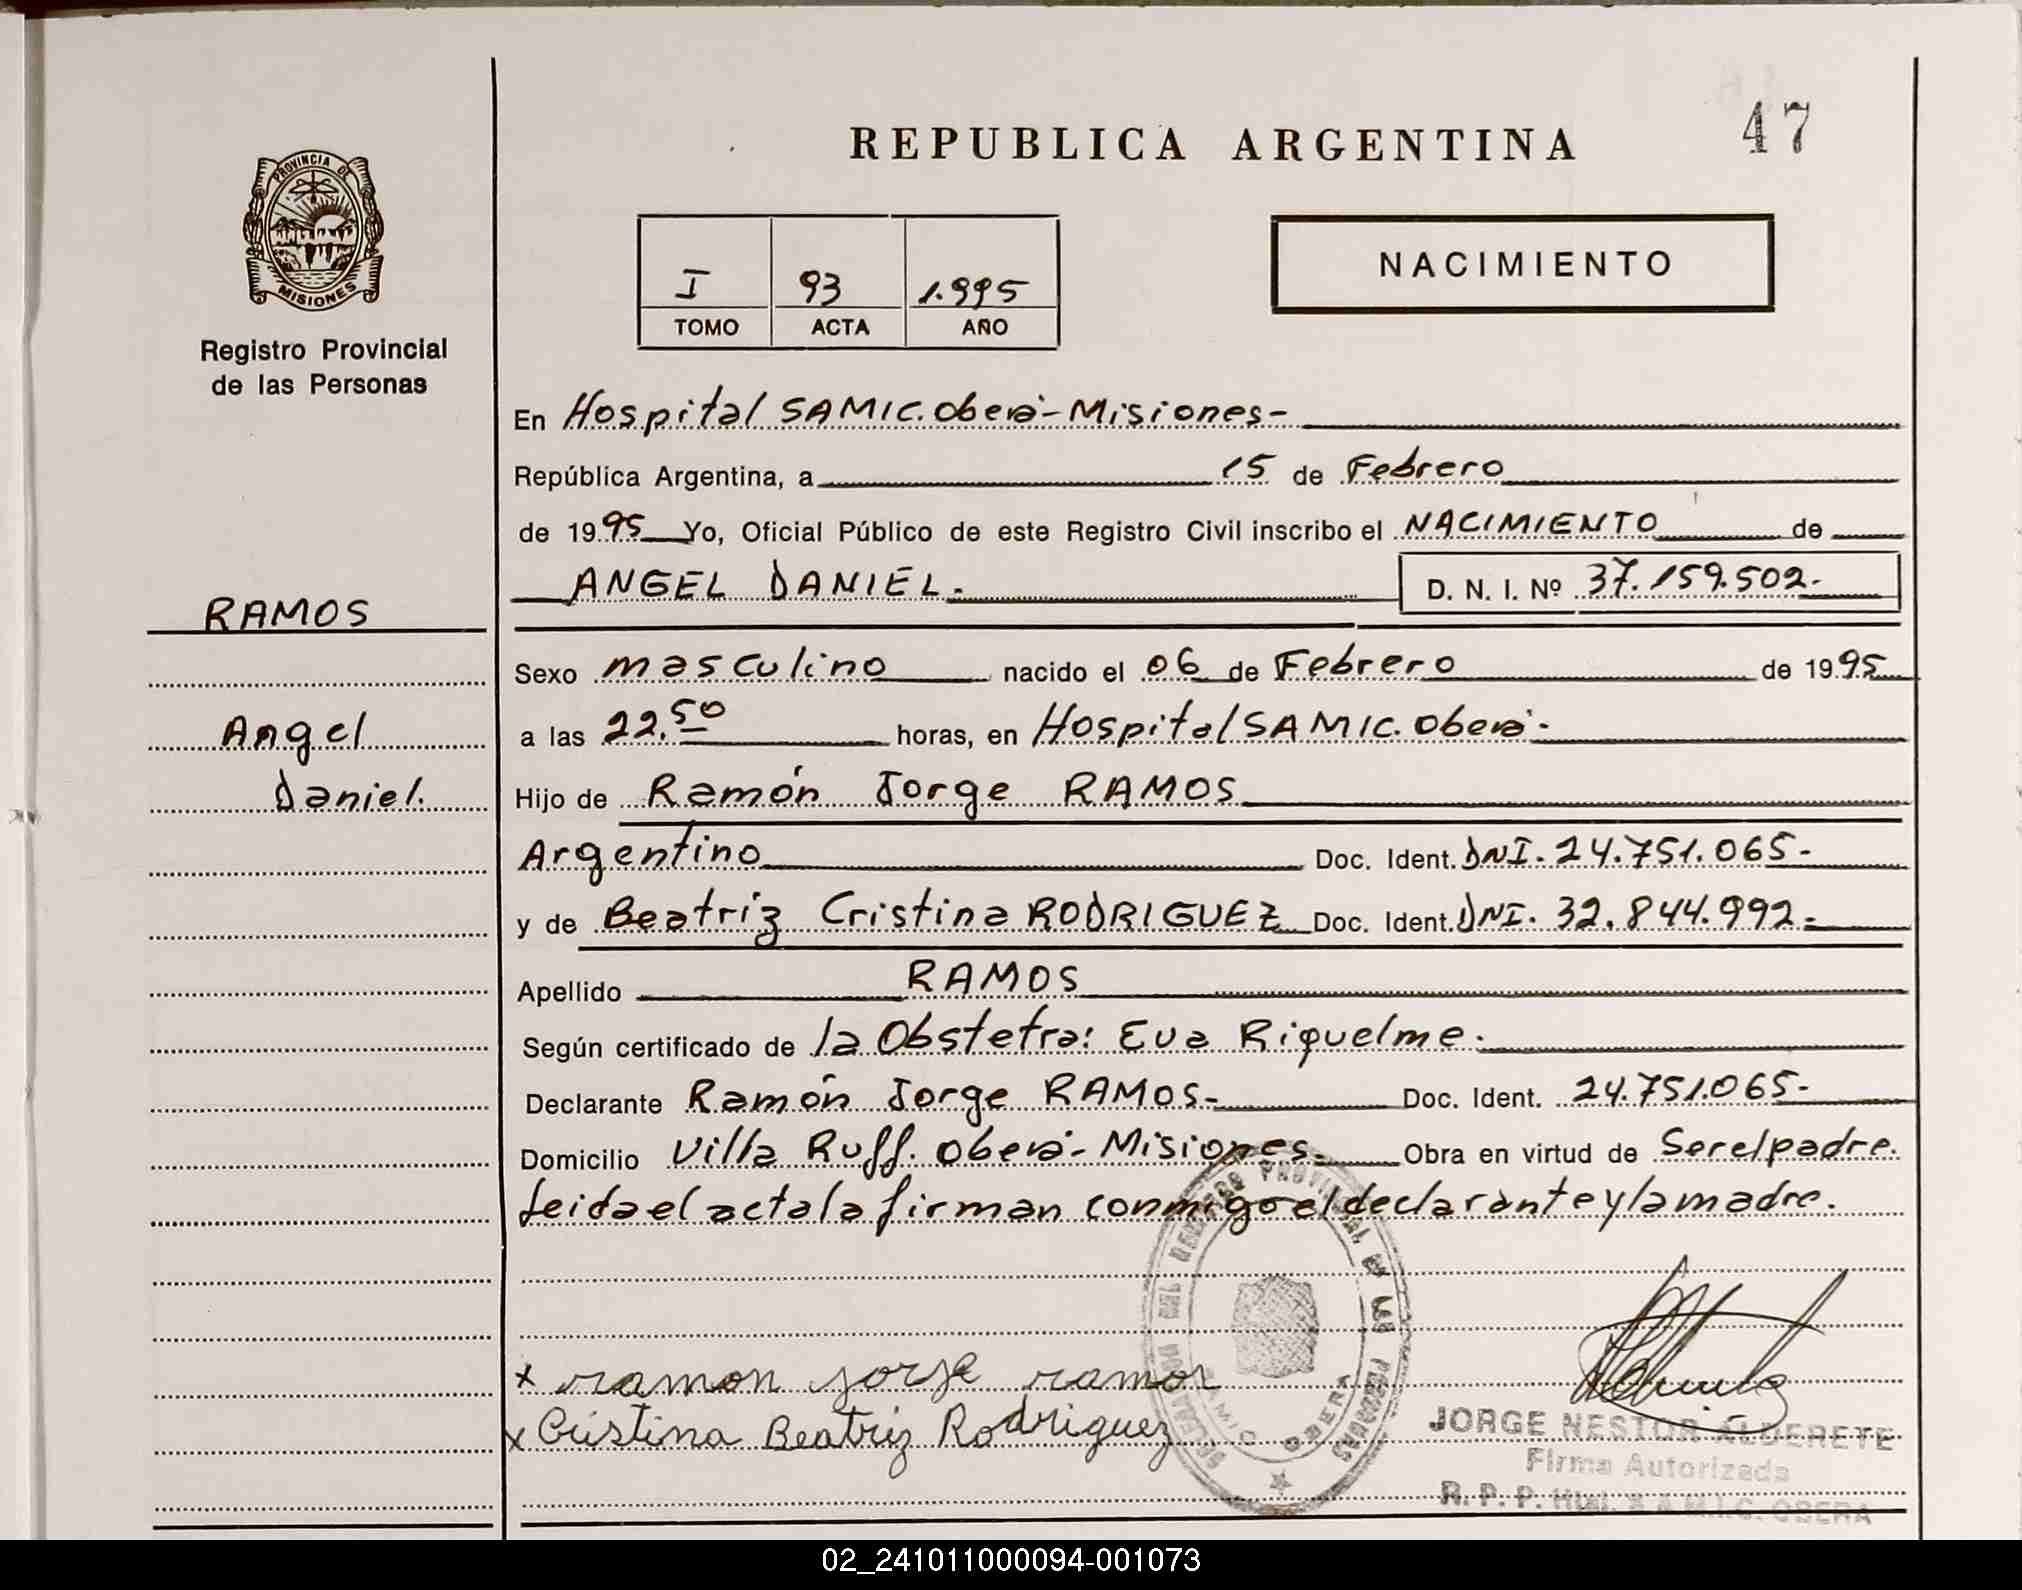 REPUBLICA ARGENTINA
47
PROVINCIA DE
MISIONES
Registro Provincial
de las Personas
I 93 1.995
TOMO ACTA AÑO
NACIMIENTO
En Hospital SAMIC. Oberá - Misiones -
República Argentina, a 15 de Febrero
de 1995 Yo, Oficial Público de este Registro Civil inscribo el NACIMIENTO de
ANGEL DANIEL.
D. N. I. Nº 37.159.502.-
RAMOS
Angel
Daniel.
Sexo masculino nacido el 06 de Febrero de 1995
a las 22.50 horas, en Hospital SAMIC. Oberá -
Hijo de Ramón Jorge RAMOS
Argentino Doc. Ident. DNI. 24.751.065-
y de Beatriz Cristina RODRIGUEZ Doc. Ident. DNI. 32.844.992-
Apellido RAMOS
Según certificado de la Obstetra: Eva Riquelme.
Declarante Ramón Jorge RAMOS- Doc. Ident. 24.751.065-
Domicilio Villa Ruff. Oberá - Misiones. Obra en virtud de Ser el padre.
Leida el acta la firman conmigo el declarante y la madre.
x ramon jorje ramos
x Cristina Beatriz Rodriguez
REGISTRO PROVINCIAL DE LAS PERSONAS
OBERA
JORGE NESTOR ALDERETE
Firma Autorizada
R. P. P. Htal. S.A.M.I.C. OBERA
02_241011000094-001073